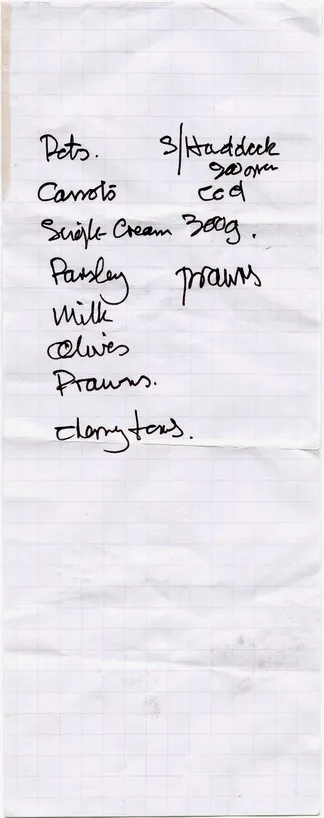 Pots. S/Haddock
900gm
Carrots Cod
Single Cream 300g.
Parsley prawns
Milk
Olives
Prawns.
cherry toms.